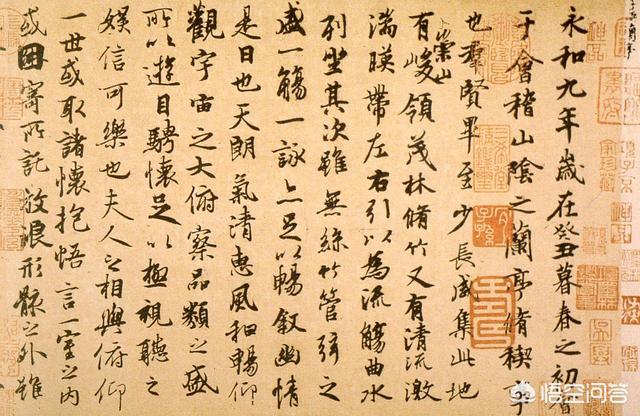 永和九年歲在癸丑暮春之初會
于會稽山陰之蘭亭脩禊事
也羣賢畢至少長咸集此地
有崇山峻領茂林脩竹又有清流激
湍暎帶左右引以為流觴曲水
列坐其次雖無絲竹管弦之
盛一觴一詠亦足以暢敘幽情
是日也天朗氣清惠風和暢仰
觀宇宙之大俯察品類之盛
所以遊目騁懷足以極視聽之
娛信可樂也夫人之相與俯仰
一世或取諸懷抱悟言一室之內
或因寄所託放浪形骸之外雖
悟空问答